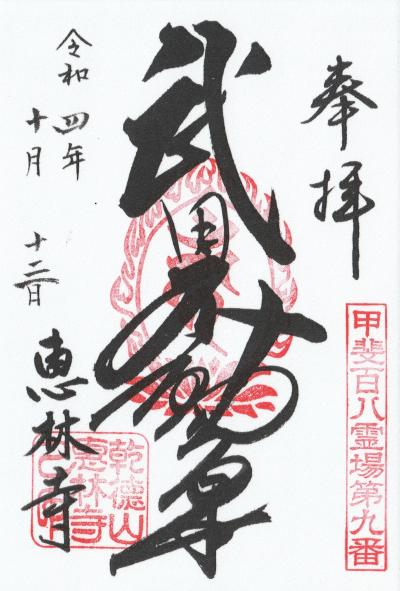 奉拝
甲斐百八霊場第九番
武田不動尊
令和四年
十月十二日
恵林寺
乾徳山
恵林寺